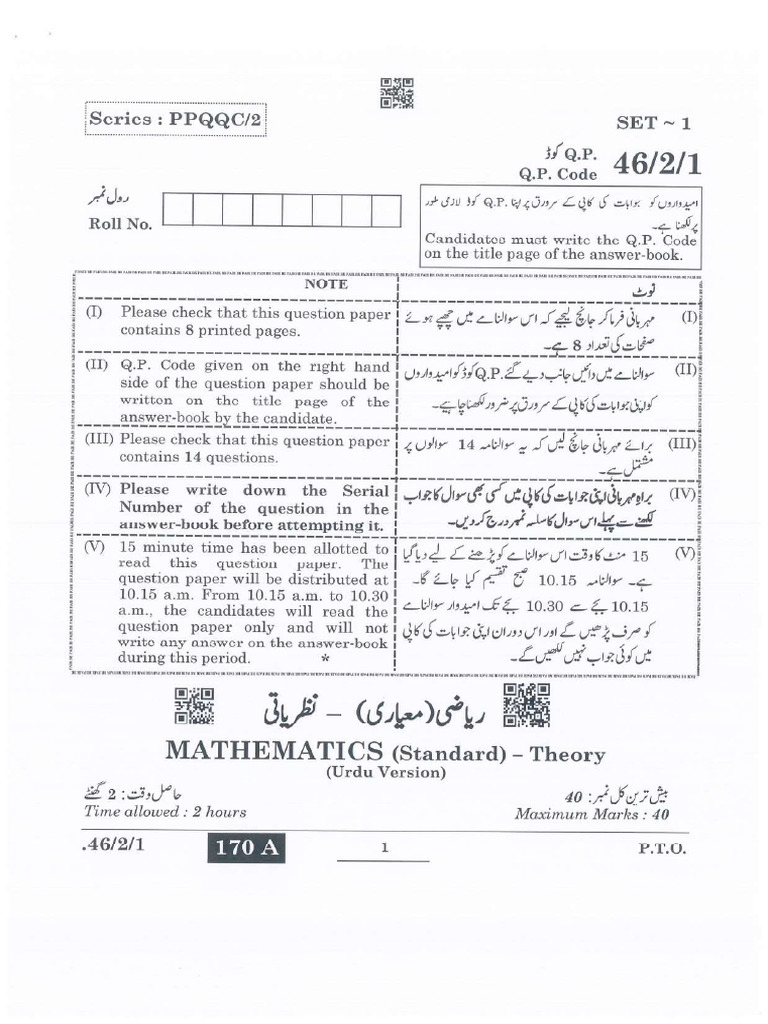 Series : PPQQC/2
SET ~ 1
Q.P. کوڈ
Q.P. Code 46/2/1
رول نمبر
Roll No.
امیدواروں کو جوابات کی کاپی کے سرورق پر اپنا Q.P. کوڈ لازمی طور
پر لکھنا ہے۔
Candidates must write the Q.P. Code
on the title page of the answer-book.
NOTE
(I) Please check that this question paper
contains 8 printed pages.
(II) Q.P. Code given on the right hand
side of the question paper should be
written on the title page of the
answer-book by the candidate.
(III) Please check that this question paper
contains 14 questions.
(IV) Please write down the Serial
Number of the question in the
answer-book before attempting it.
(V) 15 minute time has been allotted to
read this question paper. The
question paper will be distributed at
10.15 a.m. From 10.15 a.m. to 10.30
a.m., the candidates will read the
question paper only and will not
write any answer on the answer-book
during this period. *
نوٹ
(I) مہربانی فرما کر جانچ لیجیے کہ اس سوالنامے میں چھپے ہوئے
صفحات کی تعداد 8 ہے۔
(II) سوالنامے میں دائیں جانب دیے گئے Q.P. کوڈ کو امیدواروں
کو اپنی جوابات کی کاپی کے سرورق پر ضرور لکھنا چاہیے۔
(III) برائے مہربانی جانچ لیں کہ یہ سوالنامہ 14 سوالوں پر
مشتمل ہے۔
(IV) براہِ مہربانی اپنی جوابات کی کاپی میں کسی بھی سوال کا جواب
لکھنے سے پہلے اس سوال کا سلسلہ نمبر درج کردیں۔
(V) 15 منٹ کا وقت اس سوالنامے کو پڑھنے کے لیے دیا گیا
ہے۔ سوالنامہ 10.15 صبح تقسیم کیا جائے گا۔
10.15 بجے سے 10.30 بجے تک امیدوار سوالنامے
کو صرف پڑھیں گے اور اس دوران اپنی جوابات کی کاپی
میں کوئی جواب نہیں لکھیں گے۔
ریاضی (معیاری) – نظریاتی
MATHEMATICS (Standard) – Theory
(Urdu Version)
حاصل وقت: 2 گھنٹے
بیش ترین کل نمبر: 40
Time allowed : 2 hours
Maximum Marks : 40
.46/2/1
170 A
1
P.T.O.